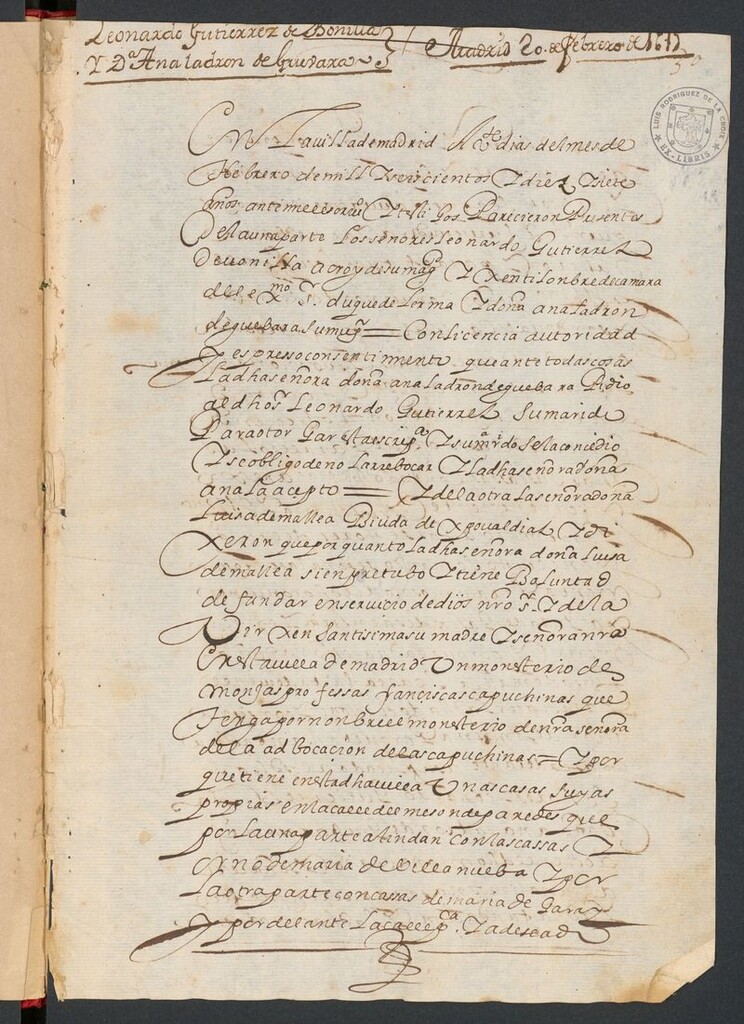 Leonardo Gutierrez de Bonilla
Y Dª Ana ladron de Guevara
Madrid 20 de febrero de 1617
LUIS RODRIGUEZ DE LA CROIX
EX-LIBRIS
En La villa de madrid A Vte dias del mes de
Hebrero de mill y seiscientos y diez y siete
años ante mi el escrivº y testigos Parecieron Presentes
De la una parte Los señores Leonardo Gutierrez
De vonilla acroy de su magd y xentilonbre de camara
del exmo sr duque de Lerma y doña ana Ladron
de guebara su muger = Con licencia autoridad
y espresso consentimento que ante todas cosas
La dha señora doña ana Ladron de guebara Pidio
al dho sr Leonardo Gutierrez su marido
Para otorgar esta escripª y su mrdo se la concedio
y se obligo de no La rrebocar y La dha señora doña
ana La acepto = y de la otra La señora doña
Luisa de mallea Biuda de xpoval diaz y di
xeron que por quanto La dha señora doña Luisa
de mallea sienpre tubo y tiene Boluntad
de fundar en servicio de dios nro sr y de la
Virxen Santisima su madre y señora nra
En esta villa de madrid Un monesterio de
monjas professas franciscas capuchinas que
tenga por nonbre el monesterio de nra señora
de la adbocacion de las capuchinas = y por
que tiene en esta dha villa Unas casas suyas
propias en la calle de meson de paredes que
por La una parte alindan con las cassas
de maria de Villanueba y por
La otra parte con cassas de maria de Garay
y por delante La calle pca y a desead